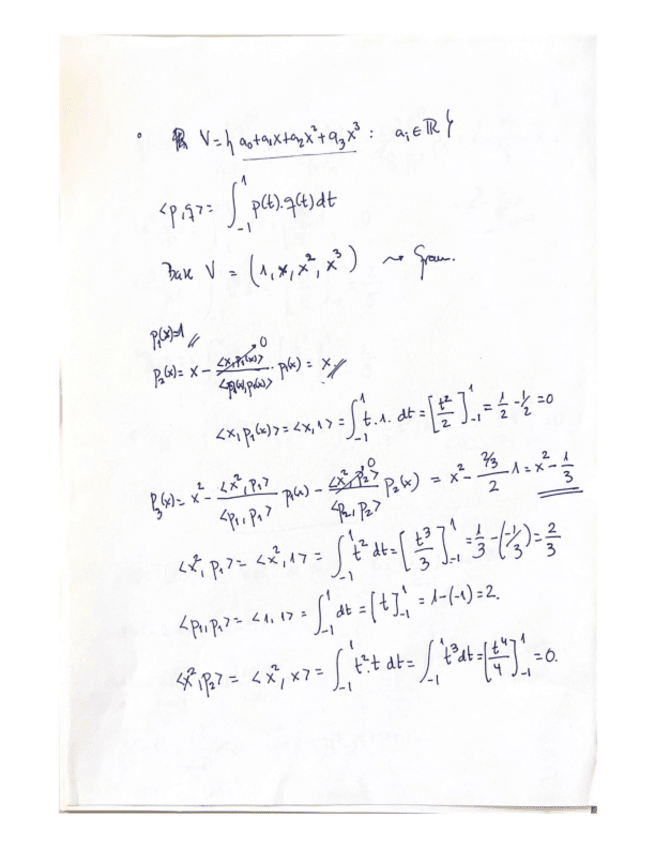 V = { a₀+a₁x+a₂x²+a₃x³ : aᵢ ∈ ℝ }
<p,q> = ∫₋₁¹ p(t).q(t)dt
Base V = (1, x, x², x³) ⇝ Gram.
p₁(x)=1 //
p₂(x) = x - <x,p₁(x)>/<p₁(x),p₁(x)> · p₁(x) = x // 0
<x,p₁(x)> = <x,1> = ∫₋₁¹ t.1. dt = [t²/2]₋₁¹ = 1/2 - 1/2 = 0
p₃(x) = x² - <x²,p₁>/<p₁,p₁> p₁(x) - <x²,p₂>/<p₂,p₂> p₂(x) = x² - (2/3)/2 · 1 = x² - 1/3 0
<x²,p₁> = <x²,1> = ∫₋₁¹ t² dt = [t³/3]₋₁¹ = 1/3 - (-1/3) = 2/3
<p₁,p₁> = <1,1> = ∫₋₁¹ dt = [t]₋₁¹ = 1-(-1) = 2.
<x²,p₂> = <x²,x> = ∫₋₁¹ t².t dt = ∫₋₁¹ t³dt = [t⁴/4]₋₁¹ = 0.